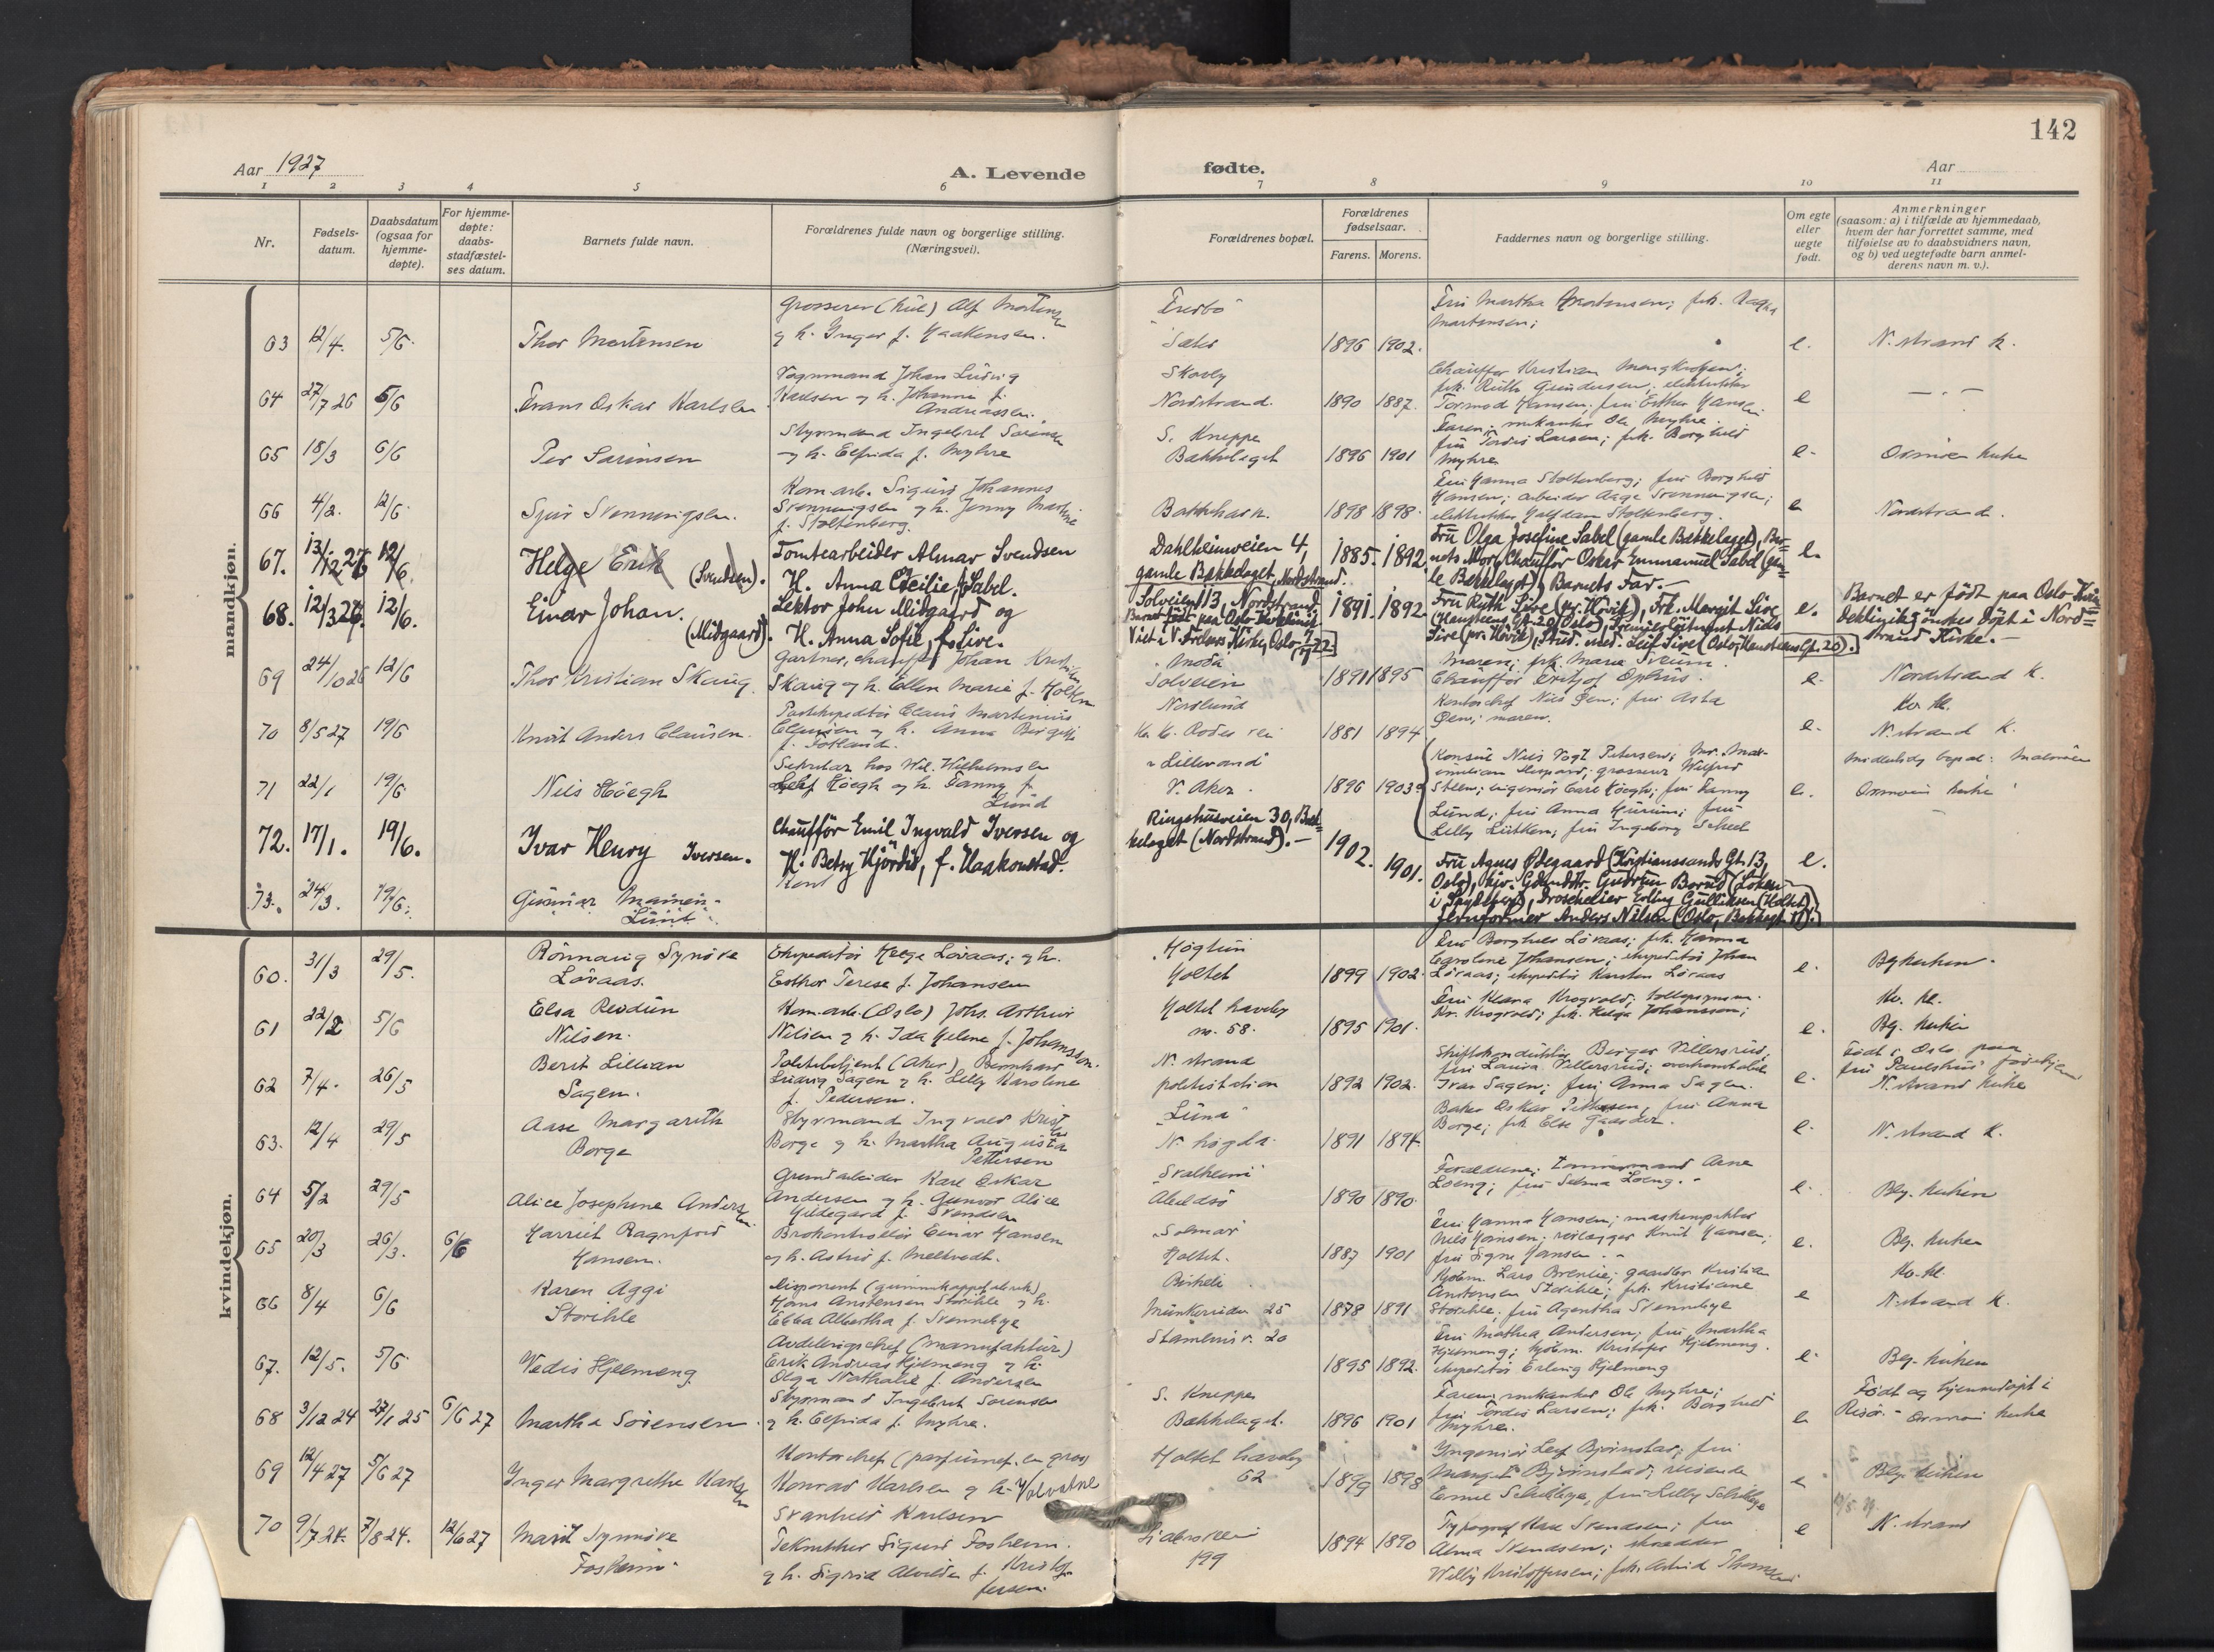 142
Aar 1927
A. Levende
fødte.
Aar
1 2 3 4 5 6 7 8 9 10 11
Nr.
Fødsels-
datum.
Daabsdatum
(ogsaa for
hjemme-
døpte).
For hjemme-
døpte:
daabs-
stadfæstel-
ses datum.
Barnets fulde navn.
Forældrenes fulde navn og borgerlige stilling.
(Næringsvei).
Forældrenes bopæl.
Forældrenes
fødselsaar.
Farens. Morens.
Faddernes navn og borgerlige stilling.
Om egte
eller
uegte
født.
Anmerkninger
(saasom: a) i tilfælde av hjemmedaab,
hvem der har forrettet samme, med
tilføielse av to daabsvidners navn,
og b) ved uegtefødte barn anmel-
derens navn m. v.).
mandkjøn.
63 12/4. 5/6. Thor Mortensen
Grosserer Alf Mortensen
og h. Inger f. Haakensen.
Sæter
1896 1902.
Fru Martha Mortensen; frk.
Mortensen;
e. N. strand k.
64 27/7 26 5/6 Frans Oskar Karlsen
Vognmand Johan Ludvig
Karlsen og h. Johanna f.
Andreassen.
Skovly
Nordstrand.
1890 1887.
Chauffør Kristian
frk. Ruth Gundersen; elektriker
Tormod Hansen; fru Esther Hansen.
e
65 18/3 6/6 Per Sørensen
Styrmand Ingebret Sørensen
og h. Elfrida f. Myhre
S. Kneppe
Bækkelaget
1896 1901
Faren; Ole Myhre.
fru Tordis Larsen; frk. Borghild
Myhre
e. Ormøen kirke
66 4/2. 12/6. Svenningsen.
Kom. arb. Sigurd Johannes
Svenningsen og h. Jenny Martine
f. Stoltenberg.
1898 1898.
Fru Hanna Stoltenberg; fru Borghild
Hansen; arbeider Aage Svenningsen;
elektriker Halfdan Stoltenberg.
e Nordstrand.
67. 13/12 26 12/6. Helge Erik (Svendsen).
Tomtearbeider Almar Svendsen
H. Anna Cecilie, f. Sabel.
Dahlheimveien 4,
gamle Bækkelaget, Nordstrand.
1885. 1892.
Fru Olga Josefine Sabel (gamle Bækkelaget), Bar=
nets Mor, Chauffør Oskar Emmanuel Sabel (gam=
le Bækkelaget), Barnets Far. —
e.
68. 12/3 27. 12/6. Einar Johan.
(Midgaard).
Lektor John Midgaard og
H. Anna Sofie, f. Sive.
Solveien 113, Nordstrand.
Barnet født paa Oslo Kvindeklinik
Viet i V. Frelsers Kirke, Oslo,
1891. 1892.
Fru Ruth Sive (pr. Høvik), Frk. Margit Sive
(Hansteens Gt. 20, Oslo), Premierløitnant Niels
Sive (pr. Høvik), Stud. med. Leif Sive (Oslo, Hansteens Gt. 20).
e.
Barnet er født paa Oslo Kvin=
deklinik, ønskes døpt i Nord=
strand Kirke. —
69 24/10 26 12/6 Thor Kristian Skaug.
Gartner, chauffør Johan Kristian
Skaug og h. Ellen Marie f. Holten
Solveien
1891 1895
Moren; frk. Maria Sveum.
Chauffør Fritjof Ophus.
e. Nordstrand k.
70 8/5 27 19/6 Knut Anders Clausen.
Postekspeditør Claus Martinius
Clausen og h. Anna Birgitte
f. Fokland.
Nordlund
1881 1894
Kontorchef Nils Øen; fru Asta
Øen; moren.
e.
Ko. kl.
N. strand k.
71 22/1 19/6 Nils Höegh
Sekretær hos Wil. Wilhelmsen
Leif Höegh og h. Fanny f.
Lund
Lillevand
V. Aker.
1896 1903.
Konsul Niels Vogt Petersen;
grosserer Wilfred
Steen; ingeniør Carl Höegh; fru Fanny
Lund; fru Anna; fru
Lilly Lütken; fru Ingeborg Scheel
e.
midlertidig bopæl: Malmøen
Ormøen kirke
72. 17/1. 19/6. Ivar Henry Iversen.
Chauffør Emil Ingvald Iversen og
H. Betsy Hjørdis, f. Haakonstad.
Ringshusveien 30, Bæk=
kelaget (Nordstrand). —
1902. 1901.
Fru Agnes Ødegaard (Kristianssands Gt. 13,
Oslo), Gudrun Borud (Løken
i Spydeberg), Droscheeier Erling Gulliksen (Holtet),
Jernformer Anders Nilsen (Oslo, Bakkegt. 11).
e.
73. 24/3. 19/6. Gunnar
Lund
kvindekjøn.
60. 31/3 29/5. Rönnaug Synöve
Lövaas.
Ekspeditør Helge Lövaas; og h.
Esther Terese f. Johansen
Høgtun
Holtet
1899 1902.
Fru Borghild Løvaas; frk. Hanna
Caroline Johansen; ekspeditør Johan
Løvaas; ekspeditør Karsten Løvaas
e.
61 22/2 5/6 Elsa Reidun
Nilsen.
Kom. arb. (Oslo) Johs. Arthur
Nilsen og h. Ida Helene f. Johansson.
Holtet haveby
no. 58.
1895 1901.
Fru Klara Krogvold;
Kr. Krogvold; frk. Helga Johansson;
e.
Ko. kl.
Bg. kirke
62 7/4. 26/5 Berit Lillian
Sagen.
Politibetjent (Aker) Bernhard
Ludvig Sagen og h. Lilly Karoline
f. Pedersen.
N. strand
politistation
1892 1902.
Skiftekonduktør Birger Villersrud,
fru Laura Villersrud;
Ivar Sagen; fru Anna Sagen.
e.
Født i Oslo paa
fru Paulshus fødehjem
N. strand kirke
63. 12/4 29/5 Aase Margarith
Borge
Styrmand Ingvald Kristian
Borge og h. Martha Augusta
Pettersen
"Luna"
N. høgda.
1891 1894.
Baker Oskar Pettersen, fru Anna
Borge; frk. Else Gaarder.
e. N. strand k.
64 5/2 29/5 Alice Josephine Andersen.
Grundarbeider Karl Oskar
Andersen og h. Gunvor Alice
Hildegard f. Svendsen
"Svalheim"
Abildsø
1890 1890.
Forældrene; tømmermand Arne
Loeng; fru Selma Loeng.
e. Bg. kirken
65 20/3 26/3. 6/6 Harriet Ragnfrid
Hansen.
Brokontrollør Einar Hansen
og h. Astrid f. Meltvedt.
"Solmar"
Holtet.
1887 1901
Fru Hanna Hansen; maskinpudser
Nils Hansen; rørlægger Knut Hansen;
fru Signe Hansen.
e. Bg. kirken
66 8/4 6/6 Karen Aggi
Storihle
Disponent
Hans Anstensen Storihle og h.
Ebba Albertha f. Svennebye
Birkeli
Munkerudv. 25
1878 1891
Kjøbm. Lars Brenlie; gaardbr. Kristian
Anstensen Storihle; frk. Kristiane
Storihle; fru Agentha Svennebye
e
Ko. kl.
N. strand k.
67. 12/5. 5/6 Vedis Hjelmeng
Avdelingschef (manufaktur)
Erik Andreas Hjelmeng og h.
Olga Nathalie f. Andersen
Stamhusv. 20
1895 1892.
Fru Mathea Andersen; fru Martha
Hjelmeng; kjøbm. Kristofer Hjelmeng.
ekspeditør Erling Hjelmeng
e. Bg. kirken
68 3/12 24 27/1 25 6/6 27 Martha Sørensen.
Styrmand Ingebret Sørensen
og h. Elfrida f. Myhre.
S. Kneppe
Bækkelaget.
1896 1901
Faren; Ole Myhre;
fru Tordis Larsen; frk. Borghild
Myhre.
e
Født og hjemmedøpt i
Risør. - Ormøen kirke
69 12/4 27 5/6 27 Inger Margrethe Karlsen
Kontorchef (parfumef. en gros)
Konrad Karlsen og h. Valvatne
Svanhild Karlsen
Holtet haveby
62
1899 1898
Ingeniør Leif Bjørnstad; fru
Margit Bjørnstad; reisende
Schillbye, fru Lilly Schillbye
e Bg. kirken
70 9/7 24. 7/8 24. 12/6 27 Marit Synnøve
Fosheim.
Tekniker Sigurd Fosheim.
og h. Sigrid Alvilda f. Kristof-
fersen.
199
1894 1890
Typograf Svendsen; fru
Alma Svendsen; skrædder
Willy Kristoffersen; frk. Astrid Thomsen.
e N. strand